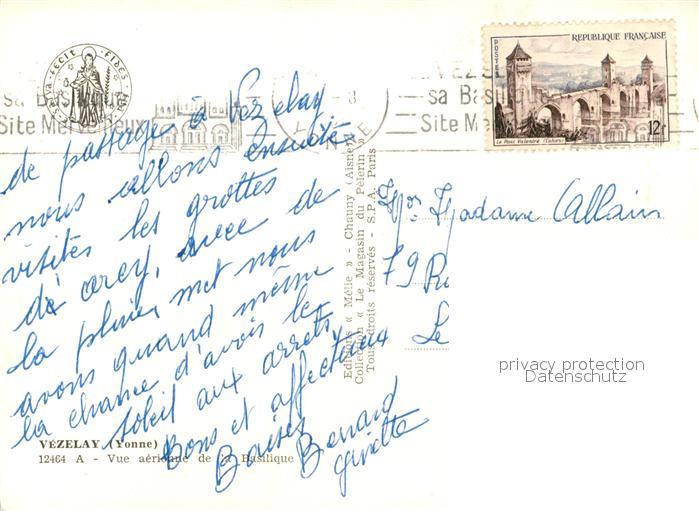 de passage à Vezelay
nous allons ensuite
visités les grottes
d'arcy, avec de
la pluie, met nous
avons quand même
la chance d'avois le
soleil aux arrets
Bons et affectueux
Baisez
Bernard
Ginette
VÉZELAY (Yonne)
12464 A - Vue aérienne de la Basilique
Editions « Mélie » - Chauny (Aisne)
Collection « Le Magasin du Pèlerin »
Tous droits réservés - S.P.A. Paris
fecit fides
sa Ba
Site Merveilleux
VEZE
sa Basilique
Site Me
REPUBLIQUE FRANÇAISE
POSTES
12F
Le Pont Valentré (Cahors)
Madame Callain
79 Ru
Le
privacy protection
Datenschutz